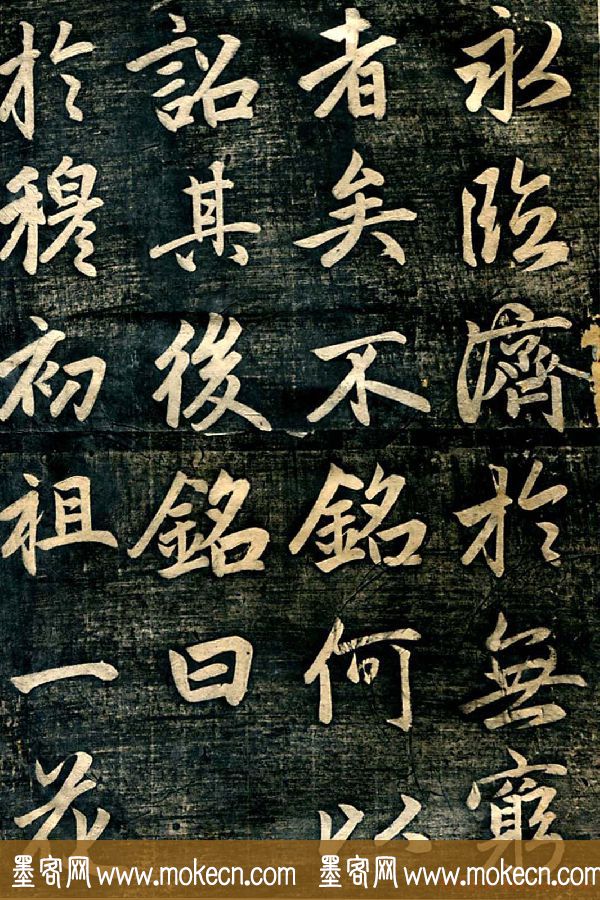 永临濟於無窮
者矣不銘何以
詔其後銘曰
於穆初祖一花
墨客网 www.mokecn.com 墨客网 www.mokecn.com